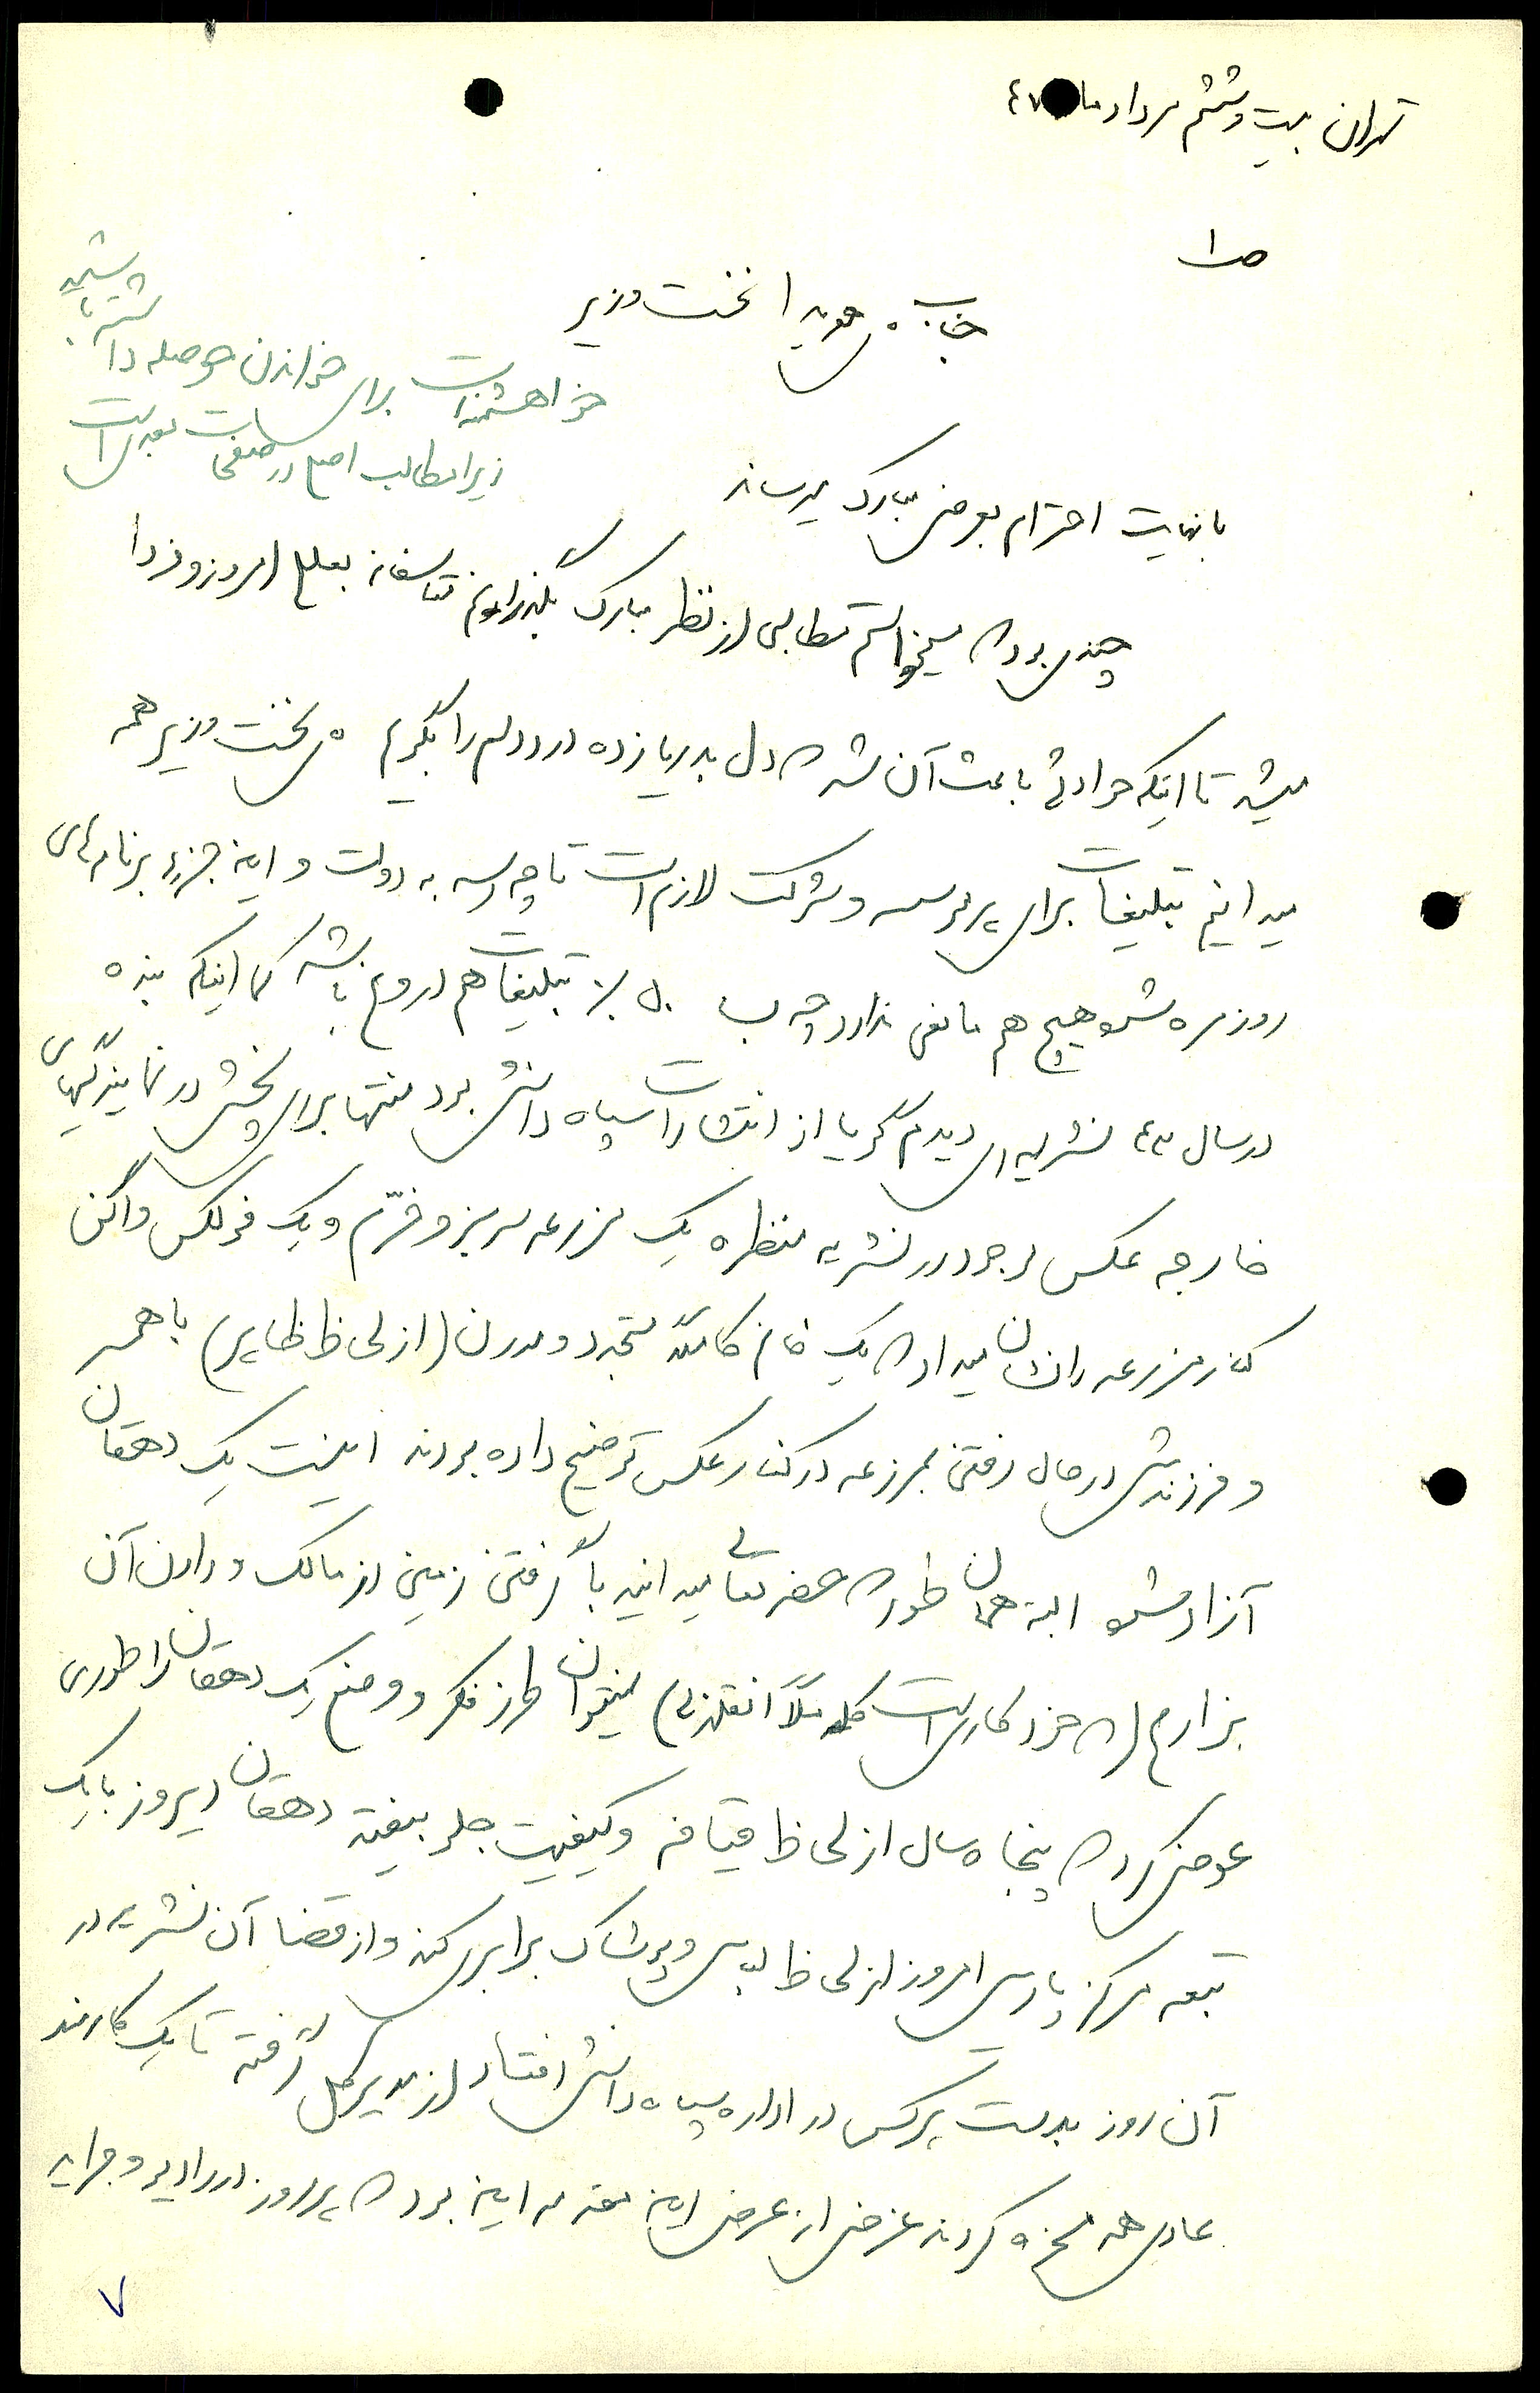 تهران بیست و ششم مرداد ماه ۴۷
ص ۱
جناب آقای هویدا نخست وزیر
خواهشمند است برای خواندن حوصله داشته باشید
زیرا مطالب اصلی در صفحات بعدی است
با نهایت احترام بعرض مبارک میرساند
چندی بود که میخواستم مطالبی از نظر مبارک بگذرانم متاسفانه بعللی امروز و فردا
میشد تا اینکه حوادثی باعث آن شد که دل بدریا زده درد دلم را بگویم آقای نخست وزیر همه
میدانیم تبلیغات برای هر موسسه و شرکت لازم است تا چه رسد به دولت و این جزء برنامه‌های
روزمره شده و هیچ هم مانعی ندارد چه بسا ۵۰٪ تبلیغات هم دروغ باشد کما اینکه بنده
در سال ۴۳ نشریه‌ای دیدم گویا از انتشارات سپاه دانش بود منتها برای پخش در نمایندگیهای
خارجه عکس موجود در نشریه منظره یک مزرعه سرسبز و خرّم و یک فولکس واگن
کنار مزرعه را نشان میداد که یک خانم کاملاً متجدد و مدرن (از لحاظ ظاهر) با همسر
و فرزندش در حال رفتن بمزرعه در کنار عکس توضیح داده بودند اینست یک دهقان
آزاد شده البته همان طور که حضرتعالی میدانید با گرفتن زمین از مالک و دادن آن
بزارع (که خود کاری است کاملاً انقلابی) نمیتوان طرز فکر و وضع یک دهقان را طوری
عوض کرد که پنجاه سال از لحاظ قیافه و کیفیت جلو بیفتد دهقان دیروز با یک
تبعه مرکز پاریس امروز از لحاظ لباس و پوشاک برابری کند و از قضا آن نشریه در
آن روز بدست هر کس در اداره سپاه دانش افتاد از مدیر کل گرفته تا یک کارمند
عادی همه مسخره کردند غرض از عرض این مقدمه این بود که هر روز در رادیو و جراید
۷